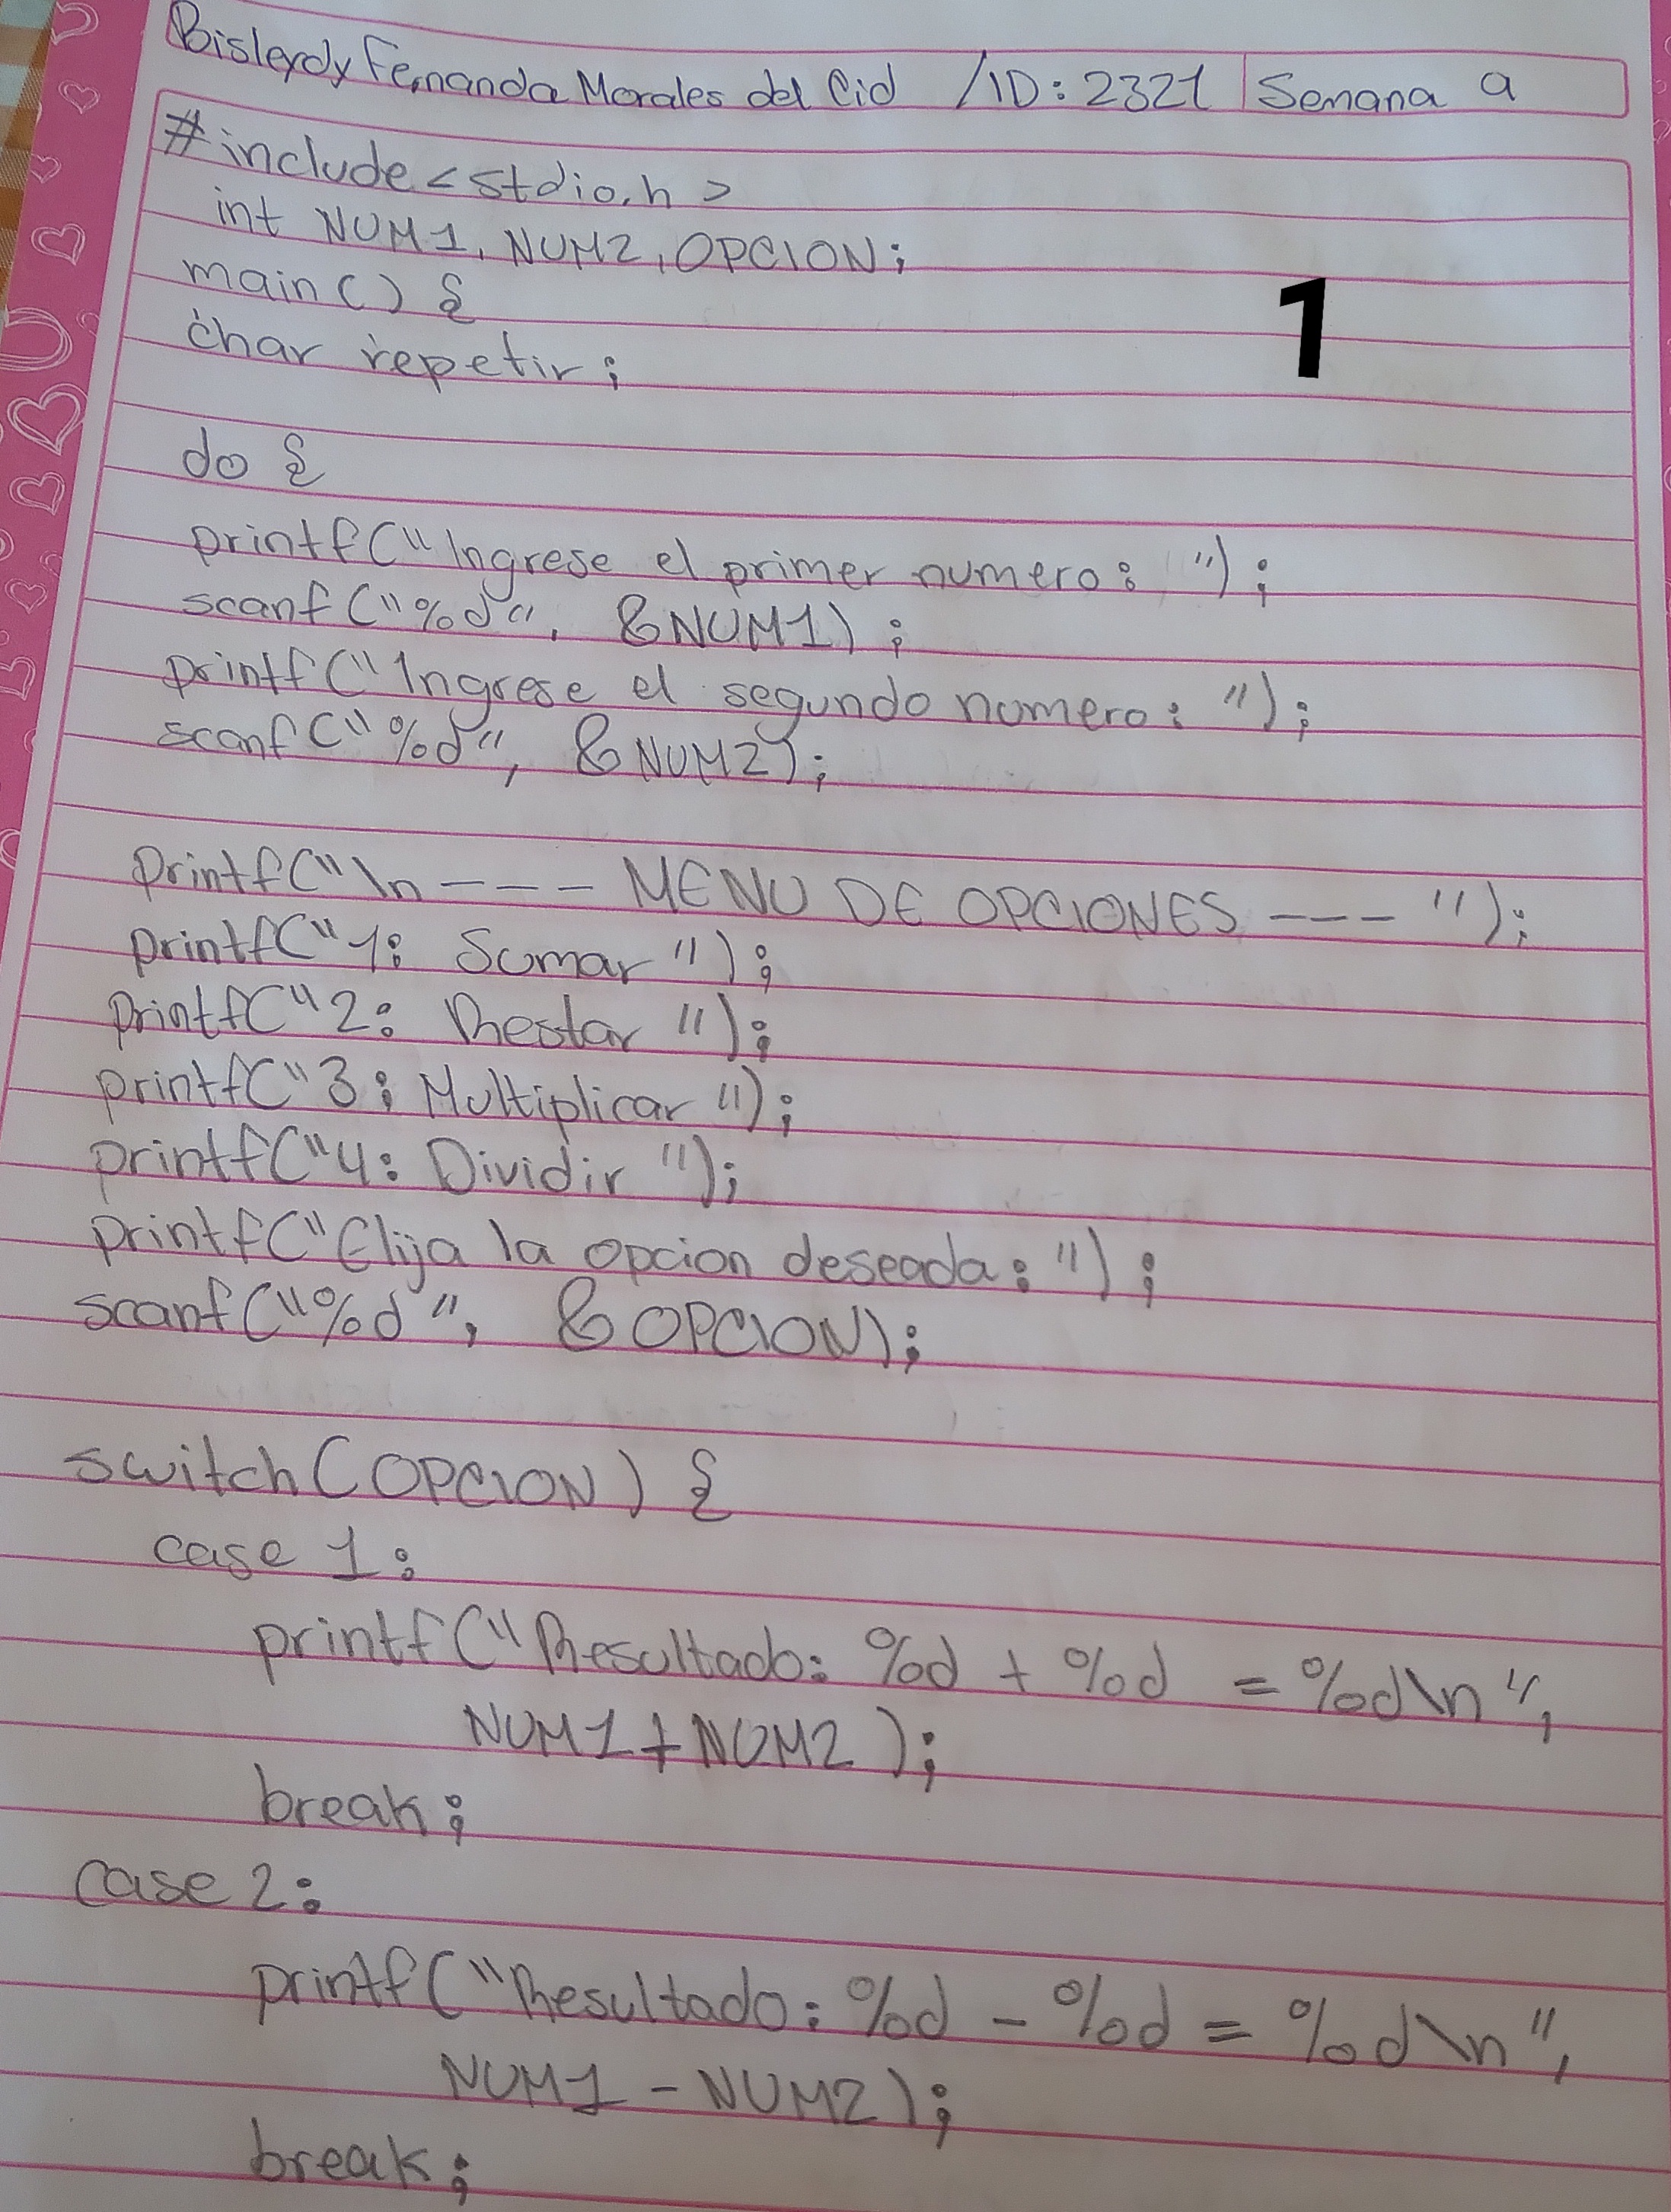 Bisleydy Fernanda Morales del Cid /ID: 2321 Semana 9
#include <stdio.h>
int NUM1, NUM2, OPCION;
main() {
1
char repetir;
do {
printf("Ingrese el primer numero: ");
scanf("%d", &NUM1);
printf("Ingrese el segundo numero: ");
scanf("%d", &NUM2);
printf("\n--- MENU DE OPCIONES --- ");
printf("1: Sumar");
printf("2: Restar");
printf("3: Multiplicar");
printf("4: Dividir");
printf("Elija la opcion deseada: ");
scanf("%d", &OPCION);
switch(OPCION) {
case 1:
printf("Resultado: %d + %d = %d\n",
NUM1+NUM2);
break;
case 2:
printf("Resultado: %d - %d = %d\n",
NUM1 - NUM2);
break;